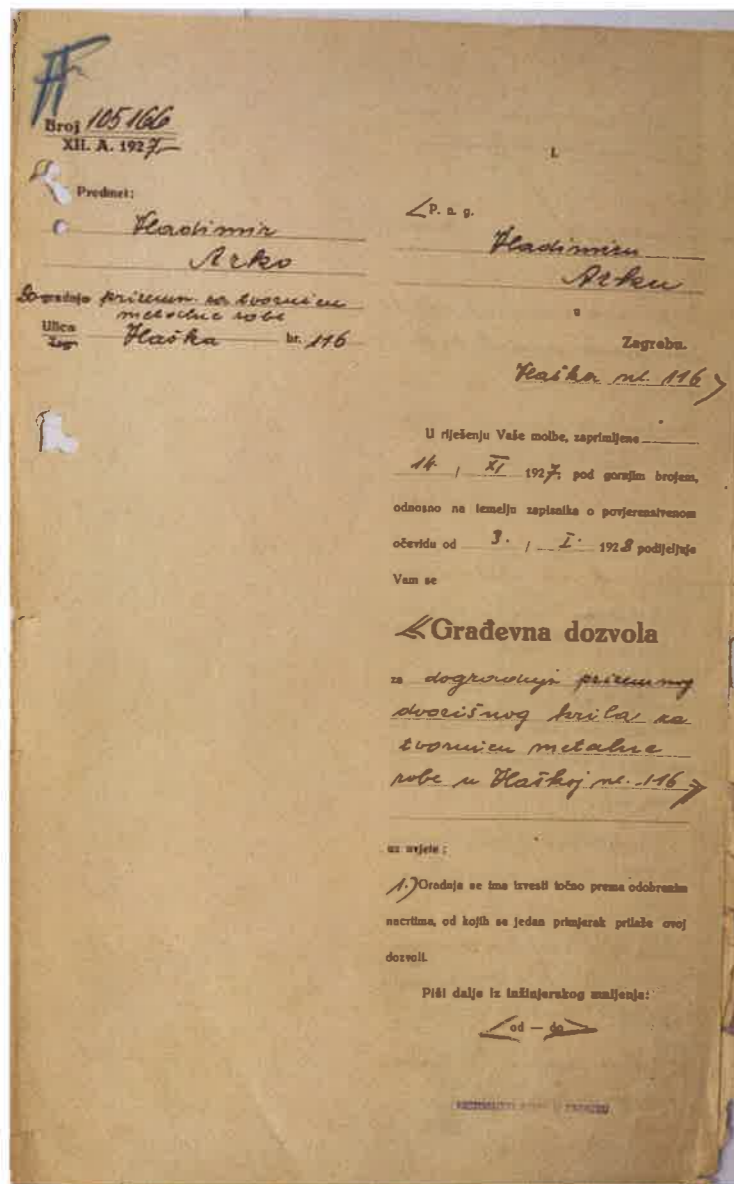 Broj 105166
XII. A. 1927
Predmet:
Vladimir
Arko
Dogradnja prizemn. za tvornicu
metalne robe
Ulica Vlaška br. 116
Trg
I.
P. n. g.
Vladimiru
Arku
u
Zagrebu.
Vlaška ul. 116
U riješenju Vaše molbe, zaprimljene
14. / XI 1927. pod gornjim brojem,
odnosno na temelju zapisnika o povjerenstvenom
očevidu od 3. / I. 1928 podijeljuje
Vam se
Građevna dozvola
za dogradnju prizemnog
dvorišnog krila za
tvornicu metalne
robe u Vlaškoj ul. 116
uz uvjete:
1.) Gradnja se ima izvesti točno prema odobrenim
nacrtima, od kojih se jedan primjerak prilaže ovoj
dozvoli.
Piši dalje iz inžinjerskog mnijenja:
od — do